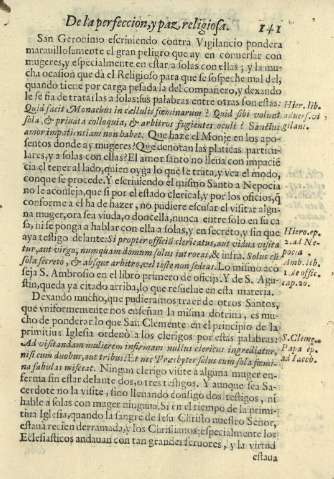 De la perfeccion, y paz religiosa. 141
San Geronimo escriuiendo contra Vigilancio pondera
marauillosamente el gran peligro que ay en conuersar con
mugeres, y especialmente en estar a solas con ellas; y la mu-
cha ocasion que dà el Religioso para que se sospeche mal del,
quando tiene por carga pesada la del compañero, y dexando
le se fia de tratarlas a solas: sus palabras entre otras son estas:
Quid facit Monachus in cellulis fœminarum? Quid sibi volunt
sola, & priuata colloquia, & arbitros fugientes oculi? Sanctus
amor impatientiam non habet. Que haze el Monje en los apo-
sentos donde ay mugeres? Que denotan las platicas particu-
lares, y a solas con ellas? El amor santo no
llena con impaciē
cia el tener al lado, quien oyga lo que se trata, y vea el modo,
conque se procede. Y escriuiendo el mismo Santo a Nepocia
no le aconseja, que si por el estado clerical, y por los oficios, q̃
conforme a el ha de hazer, no pudiere escusar el visitar algu-
na muger, ora sea viuda, o doncella, nunca entre solo en su ca
sa, ni se ponga a hablar con ella a solas, y en secreto, y sin que
aya testigo delante: Si propter officiū clericatus, aut vidua visita
tur, aut virgo, nunquam domum solus introeas, & infra. Solus cū
sola secreto, & absque arbitre, vel teste non sedeas. Lo mismo aco
seja S. Ambrosio en el libro primero de oficijs. Y de S. Agus-
tin, queda ya citado arriba, lo que resuelue en esta materia.
Dexando mucho, que pudieramos traer de otros Santos,
que vniformemente nos enseñan la misma dotrina, es mu-
cho de ponderar lo que San Clemente en el principio de la
primitiua Iglesia ordenò a los clerigos por estas palabras:
Ad visitandam mulierem infirmam nullus clericus ingrediatur,
nisi cum duobus, aut tribus: Et nec Presbyter solus cum sola fœmi-
na fabulas misceat. Ningun clerigo visite a alguna muger en-
ferma sin estar delante dos, o tres testigos. Y aunque sea Sa-
cerdote no la visite, sino lleuando consigo dos testigos, ni
hable a solas con muger ninguna. Si en el tiempo de la primi-
tiua Iglesia, quando la sangre de Iesu Christo nuestro Señor,
estaua rezien derramada, y los Christianos, especialmente los
Eclesiasticos andauan con tan grandes feruores, y la virtud
estaua
Hier. lib.
aduers. vi
gilani.
Hiero. ep
2. ad Ne-
popa.
Amb. lib.
1. de offic.
cap. 20.
S. Cleme.
Papa ep.
ad Iacob.